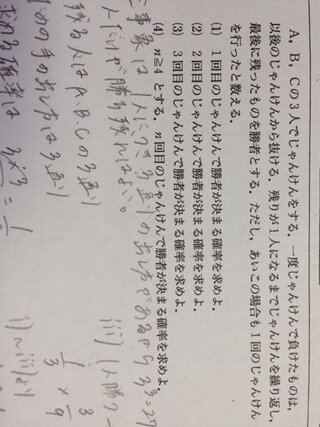 A，B，Cの3人でじゃんけんをする．一度じゃんけんで負けたものは，
以後のじゃんけんから抜ける．残りが1人になるまでじゃんけんを繰り返し，
最後に残ったものを勝者とする．ただし，あいこの場合も1回のじゃんけん
を行ったと数える．
(1) 1回目のじゃんけんで勝者が決まる確率を求めよ．
(2) 2回目のじゃんけんで勝者が決まる確率を求めよ．
(3) 3回目のじゃんけんで勝者が決まる確率を求めよ．
(4) n≧4 とする．n回目のじゃんけんで勝者が決まる確率を求めよ．
事象は1人につき3通りの出し方があるから 3³=27
人だけが勝ち残ればよい。
iii) 1人勝つ
残る人は A.B.Cの3通り
1/3 × 3/9
の手の出し方は3通り
i)~iii)より
求める確率は